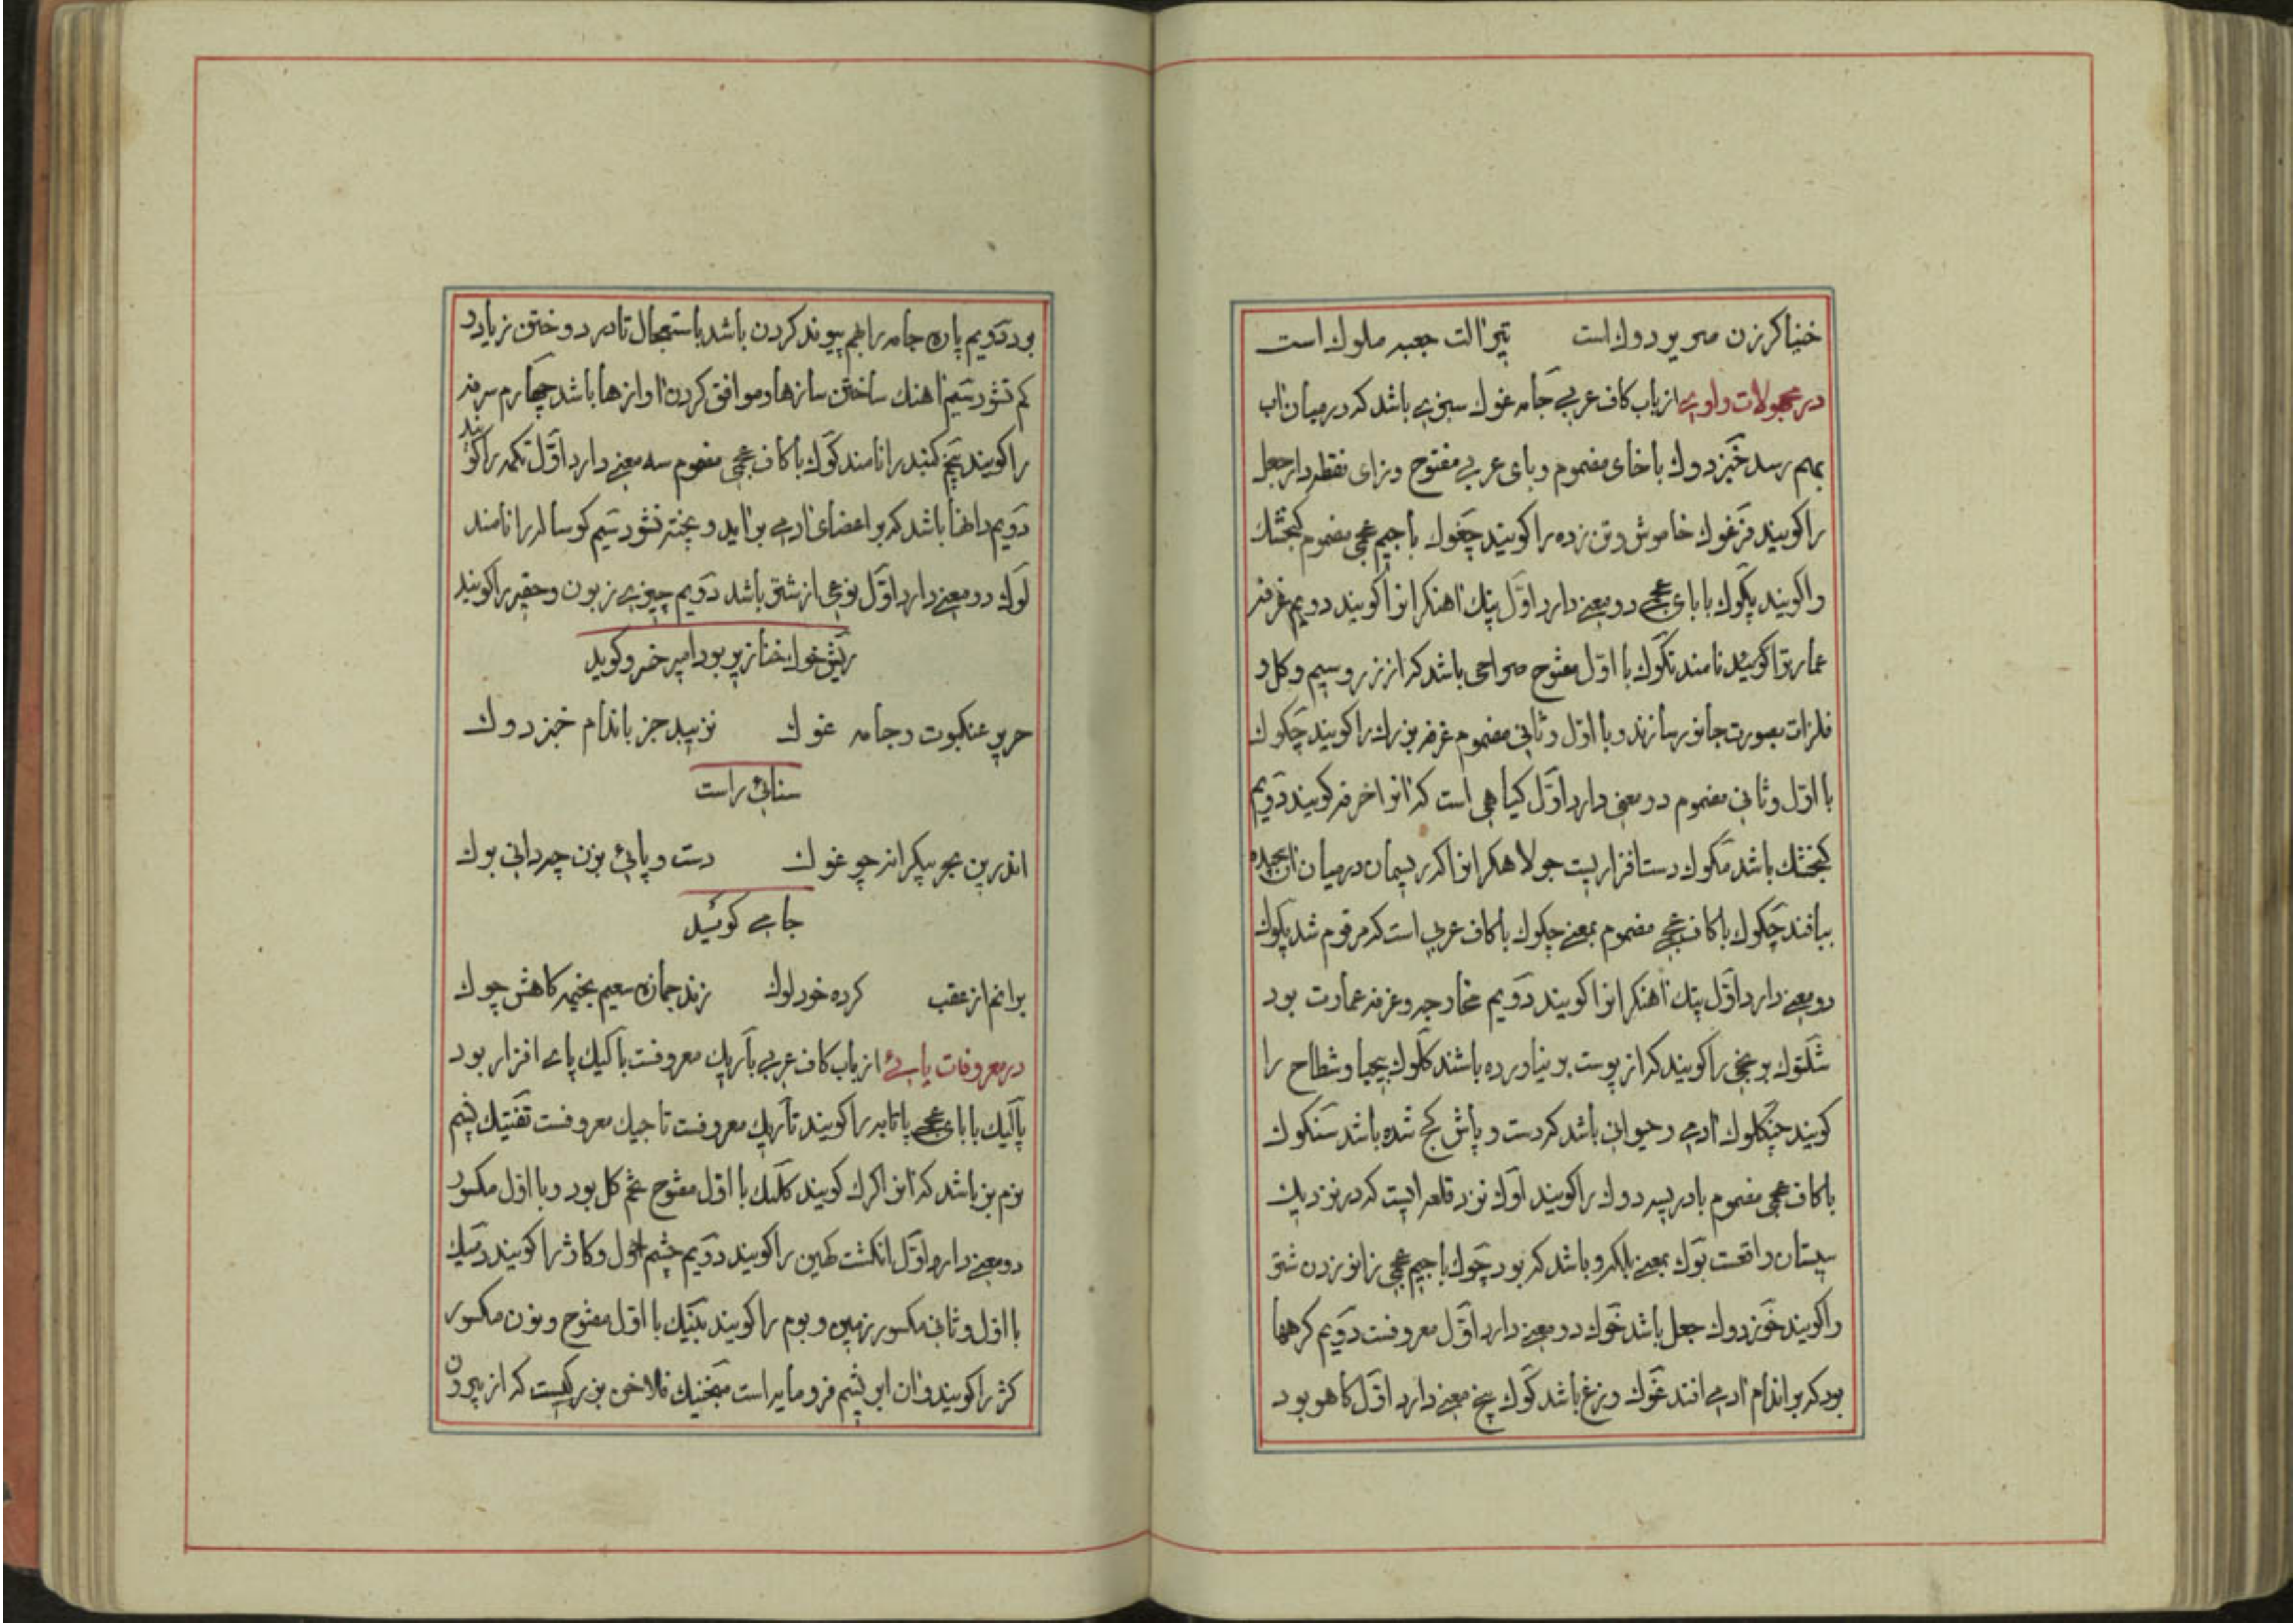 خنیاکرزن مویودوك است تیر الت جعبه ملوك است
در مجهولات واوی از باب کاف عربی جامه غوك سبزی باشد که در میان اب
بهم رسد خبزدوك با خای مضموم و بای عربی مفتوح و زای نقطه دار جعل
را کویند فرغوك خاموش و تن زده را کویند چغوك با جیم عجمی مضموم کنجشك
را کویند پکوك با بای عجمی دو معنی دارد اول پتك اهنکرانرا کویند دویم غرفه
عمارترا کویند نامند تکوك با اول مفتوح صراحی باشد که از زر و سیم و کل و
فلزات بصورت جانور سازند و با اول و ثانی مضموم غرفه بزرك را کویند چکوك
با اول و ثانی مضموم دو معنی دارد اول کیاهی است که انرا خرفه کویند دویم
کنجشك باشد مکوك دست افزاریست جولاهکرانرا که ریسمان در میان ان پیچیده
ببافند چکوك با کاف عجمی مضموم بمعنی چکوك با کاف عربی است که مرقوم شد پکوك
دو معنی دارد اول پتك اهنکرانرا کویند دویم مخارجه و غرفه عمارت بود
شلتوك برنجی را کویند که از پوست بر نیاورده باشند کلوك بیحیا و شطاح را
کویند چنکلوك ادمی و حیوانی باشد که دست و پاش کج شده باشد سنکوك
با کاف عجمی مضموم بادریسه دوك را کویند اوك نزد قلعه ایست که در نزدیك
سیستان واقعست بوك بمعنی بلکه و باشد که بود چوك با جیم عجمی زانو زدن شتر
را کویند خوزدوك جعل باشد خوك دو معنی دارد اول معروفست دویم کرهها
بود که بر اندام ادمی افتد غوك وزغ باشد کوك پنج معنی دارد اول کاهو بود
بود دویم پاره جامه را بهم پیوند کردن باشد باستعجال تا در دوختن زیاد و
کم نشود سیم اهنك ساختن سازها و موافق کردن اوازها باشد چهارم سرفه
را کویند پنج کنبد را نامند کوك با کاف عجمی مضموم سه معنی دارد اول تکمه را کویند
دویم دانها باشد که بر اعضای ادمی براید و پخته نشود سیم کوساله را نامند
لوك دو معنی دارد اول نوعی از شتر باشد دویم چیزی زبون و حقیر را کویند
ریش خوك خنازیر بود امیر خسرو کوید
حریر عنکبوت و جامه غوك نزیبد جز باندام خبزدوك
سنائی راست
اندرین بحر بیکرانه چو غوك دست و پائی بزن چه دانی بوك
جامی کوئید
برانم از عقب کرده خود لوك زند جمازه سعیم بخیمه کاهش چوك
در معروفات یایی از باب کاف عربی باریك معروفست بالیك پای افزار بود
پالیك با بای عجمی پاتابه را کویند تاریك معروفست تاجیك معروفست تفتیك پشم
نرم بز باشد که انرا کرك کویند کلیك با اول مفتوح تخم کل بود و با اول مکسور
دو معنی دارد اول انکشت کهین را کویند دویم چشم احول و کاژ را کویند زمیك
با اول و ثانی مکسور زمین و بوم را کویند بتیك با اول مفتوح و نون مکسور
کژ را کویند و ان ابریشم فرومایه است منجنیك فلاخن بزرکیست که از بیرون